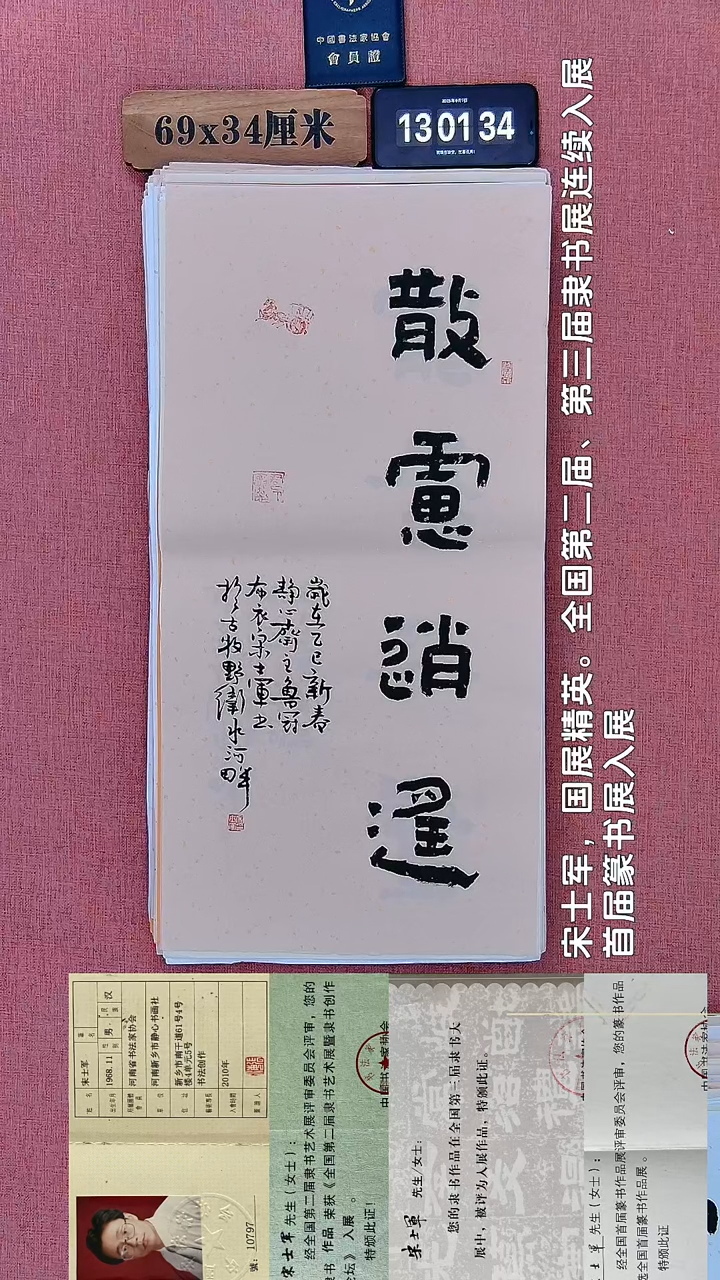 中國書法家協會
會員證
69x34厘米
13 01 34
散
慮
逍
遥
歲在乙巳新春
静心齋主魯冠
布衣宋士軍书
於古牧野衛水河畔
宋士军，国展精英。全国第二届、第三届隶书展连续入展
首届篆书展入展
姓名 宋士军 性别 男 民族 汉
出生年月 1968.11
河南省书法家协会
会员
单位 河南新乡市静心书画社
住址 新乡市南干道61号4号
楼4单元5号
书法创作
入会时间 2010年
號：10797
宋士军先生（女士）：
经全国第二届隶书艺术展评审委员会评审，您的
隶书 作品 荣获《全国第二届隶书艺术展暨隶书创作
论坛》 入展 。
特颁此证！
宋士军 先生/女士：
您的隶书作品在全国第三届隶书大
展中，被评为入展作品，特颁此证。
士军 先生（女士）：
经全国首届篆书作品展评审委员会评审，您的篆书作品
全国首届篆书作品展。
特颁此证